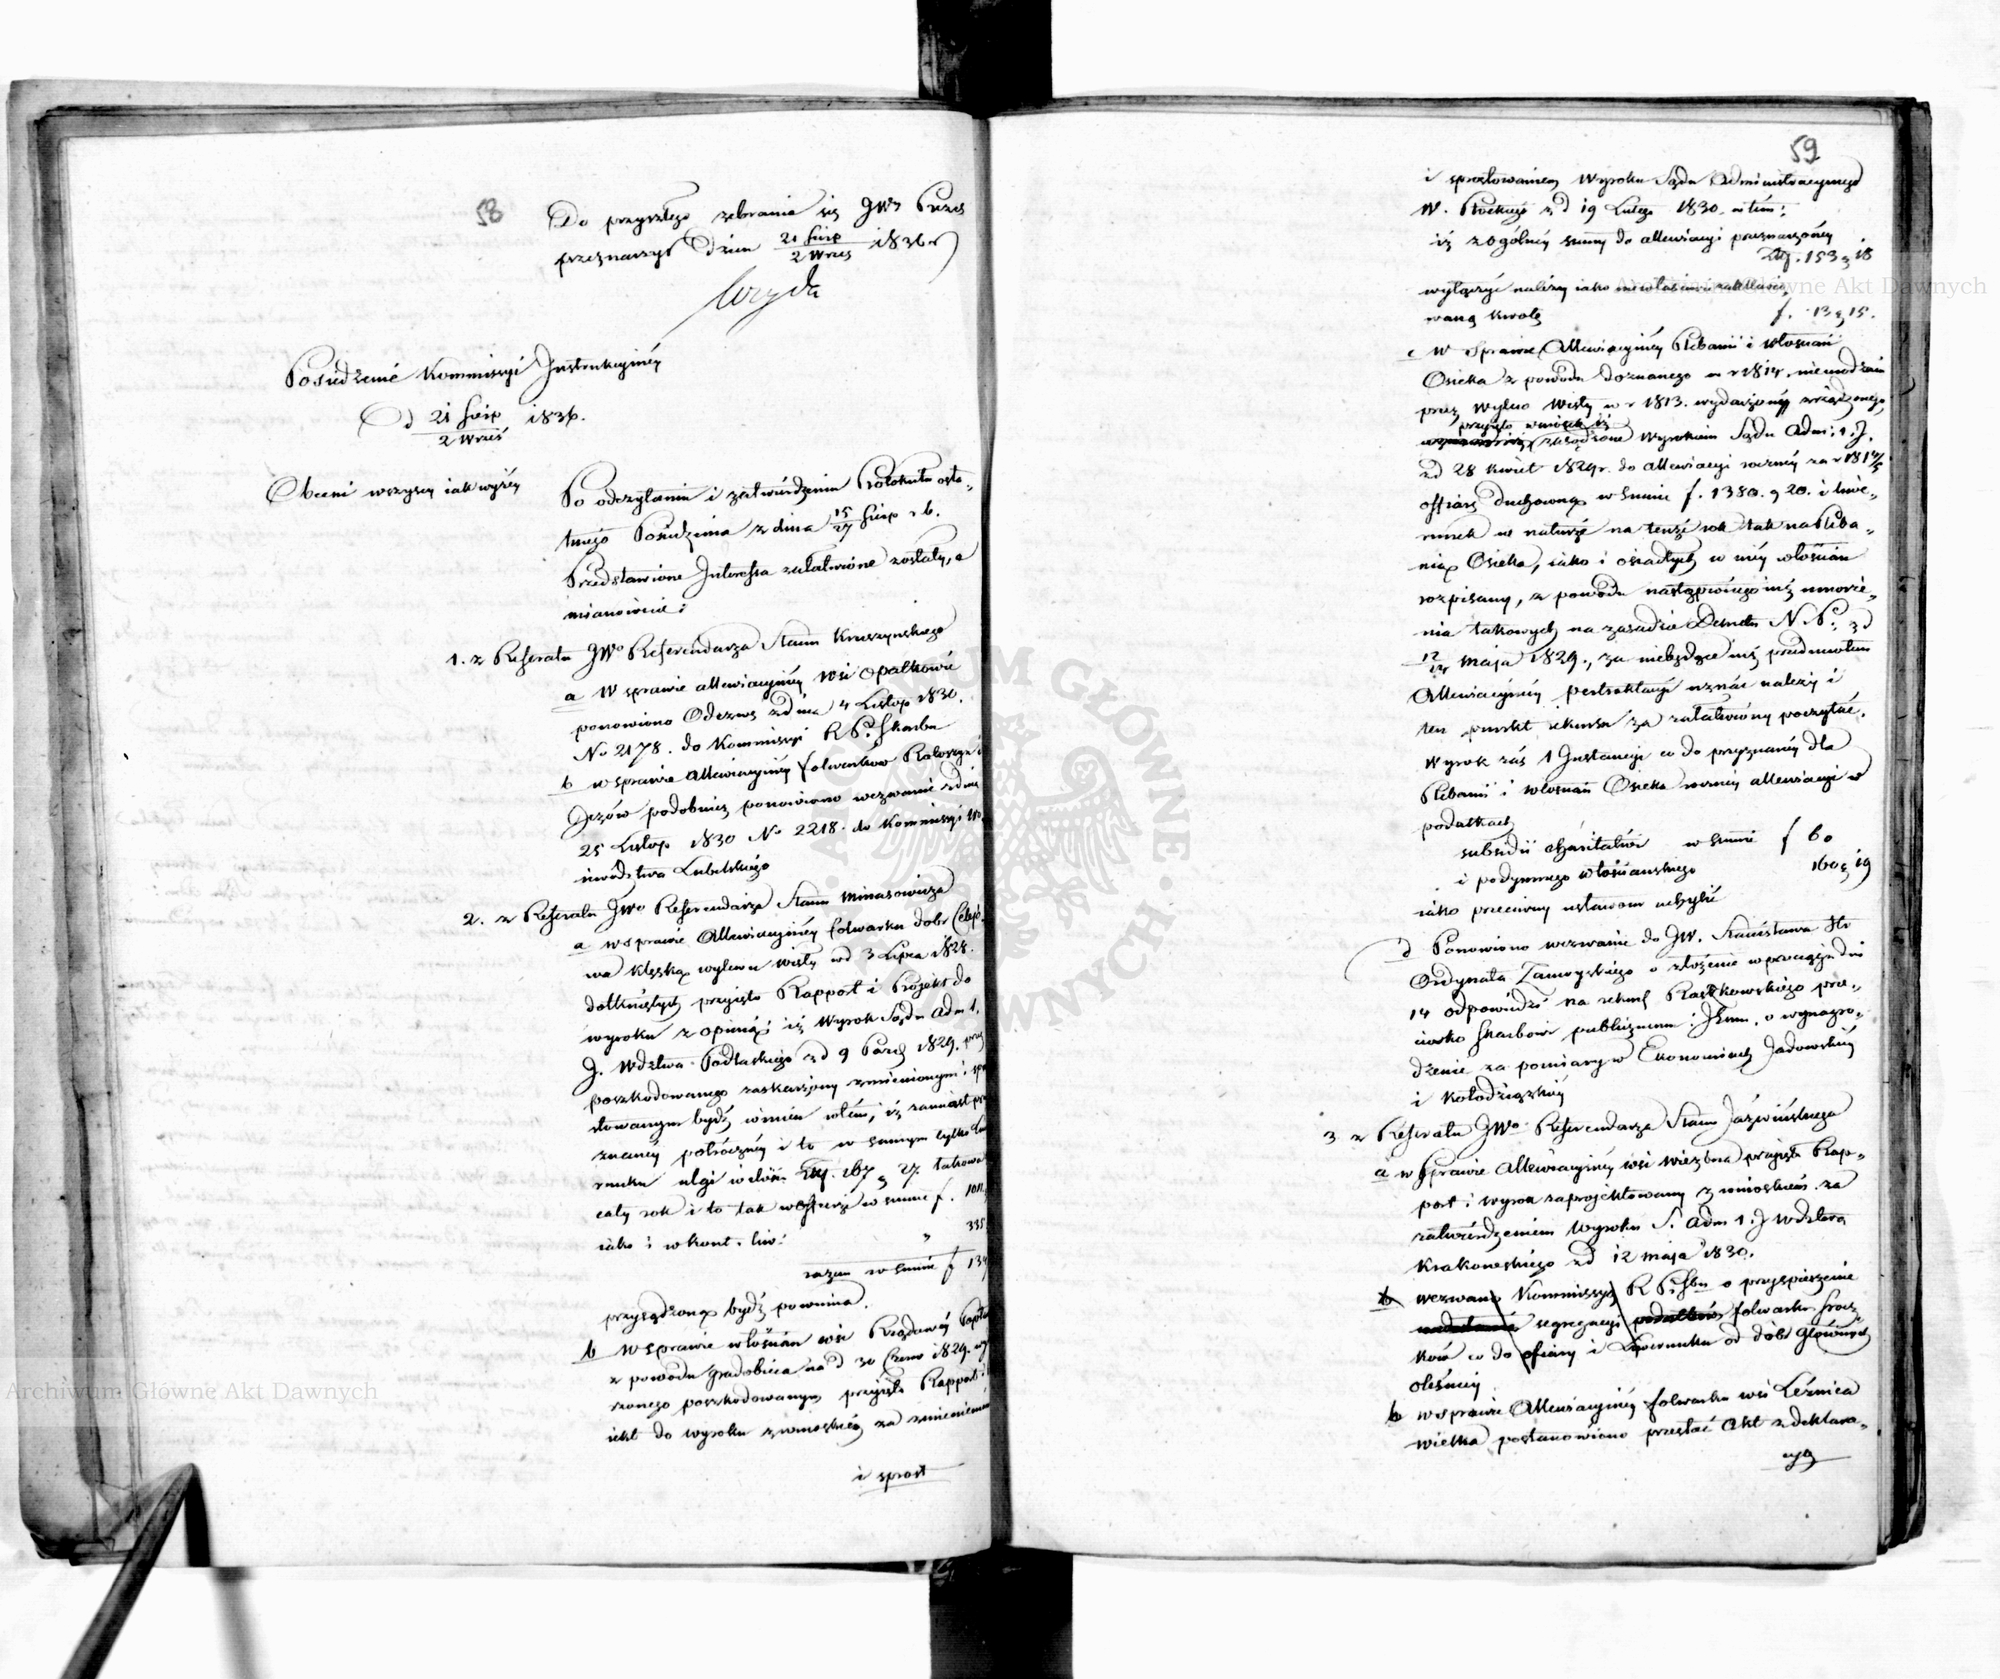 58
Do przyszłego zebrania się JWy Prezes
przeznaczył Dzień 21 Sierp / 2 Wrześ 1836 r
Posiedzenie Kommissyi Instrukcyjnéy
D 21 Sierp / 2 Wrześ 1836.
Obecni wszyscy iak wyżéy
Po odczytaniu i zatwierdzeniu Protokułu osta-
tniego Posiedzenia z dnia 15/27 Sierp r. b.
Przedstawione Interessa załatwione zostały, a
mianowicie:
1. z Referatu JWo Referendarza Stanu Kruszynskiego
a W sprawie allewiacyjnéy wsi Opatkowic
ponowiono Odezwę z dnia 4 Listop 1830.
No 2178. do Kommissyi R P. Skarbu
b w sprawie allewiacyjnéy folwarków
Jeżów podobnież ponowiono wezwanie z dnia
25 Listop 1830 No 2218. do Kommissyi Wo
iewództwa Lubelskiego
2. z Referatu JWo Referendarza Stanu Minasowicza
a w sprawie Allewiacyjnéy folwarku dobr
wa klęską wylewu Wisły w d 3 Lipca 1828.
dotkniętych przyjęto Rapport i Projekt do
wyroku z opinią; iż Wyrok Sądu Adm 1.
J. Wdztwa Podlaskiego z d 9 Paźd 1829. przez
poszkodowanego zaskarżony zmienionym i spro
stowanym bydź winien w tém, iż zamiast przy
znanéy półrocznéy i to w samym tylko
runku ulgi w ilości Złp. 167 g 27 takowa
cały rok i to tak w ofierze w summie f. 1011
iako i w kont. liw: " 335
razem w summie f 134
przysądzoną bydź powinna.
b W sprawie włościan wsi Rządowéy
z powodu gradobicia na d 30 Czerw 1829.
rzonego poszkodowanym przyjęto Rapport i
iekt do wyroku z wnioskiem za zmienieniem
i sprost
59
i sprostowaniem Wyroku Sądu Administracyjnego
W. Płockiego z d 19 Lutego 1830. w tém:
iż z ogólnéy summy do allewiacyi przeznaczonéy
Złp. 153 g 18
wyłączyć należy iako niewłaściwie
waną kwotę f. 13 g 15.
c W sprawie Allewiacyjnéy Plebanii i włościan
Osieka z powodu doznanego w r 1814. nieurodzaiu
przez wylew Wisły w r 1813. wydarzony zrządzonego,
przyjęto wniosek iż
zasądzone wyrokiem Sądu Adm: 1. J.
z d 28 Kwiet 1829 r. do allewiacyi roczney za r 1814/5
offiarę duchowną w summie f. 1380. g 20. i liwe-
runek w naturze na tenże rok tak na Pleba-
nią Osieka, iako i osiadłych w niéy włościan
rozpisany, z powodu nastąpionego iuż umorze-
nia takowych na zasadzie Dekretu N. P. z d
12/24 Maja 1829., za niebędące iuż przedmiotem
Allewiacyinéy pertraktacyi uznać należy i
ten punkt rekursu za załatwiony poczytać.
Wyrok zaś 1 Instancyi co do przyznanéy dla
Plebanii i włościan Osieka roczney allewiacyi w
podatkach
subsidii charitativi w summie f 60
i podymnego włościanskiego 160 g 19
iako przeciwny ustawom uchylić
d Ponowiono wezwanie do JW. Stanisława Hr
Ordynata Zamoyskiego o złożenie w przeciągu dni
14 odpowiedzi na rekurs Raszkowskiego prze-
ciwko Skarbowi publicznemu i Jemu, o wynagro-
dzenie za pomiary w Ekonomiach Jadowskiey
i Kołodziążskiéy
3. z Referatu JWo Referendarza Stanu Jaźwińskiego
a w Sprawie Allewiacyjnéy wsi Wierzbna przyjęto Rap-
port i wyrok zaprojektowany z wnioskiem za
zatwierdzeniem Wyroku S. Adm 1. J Wdztwa
Krakowskiego z d 12 Maja 1830.
b wezwano Kommissyą R P. Sbu o przyspieszenie
segregacyi podatków folwarku
ków co do ofiary i Liwerunku od dóbr głównych
Oleśnicy
b w sprawie Allewiacyjnéy folwarku wsi Leźnica
wielka postanowiono przesłać Akt z deklara-
cyą
Archiwum Główne Akt Dawnych
Archiwum Główne Akt Dawnych
ARCHIWUM GŁÓWNE AKT DAWNYCH